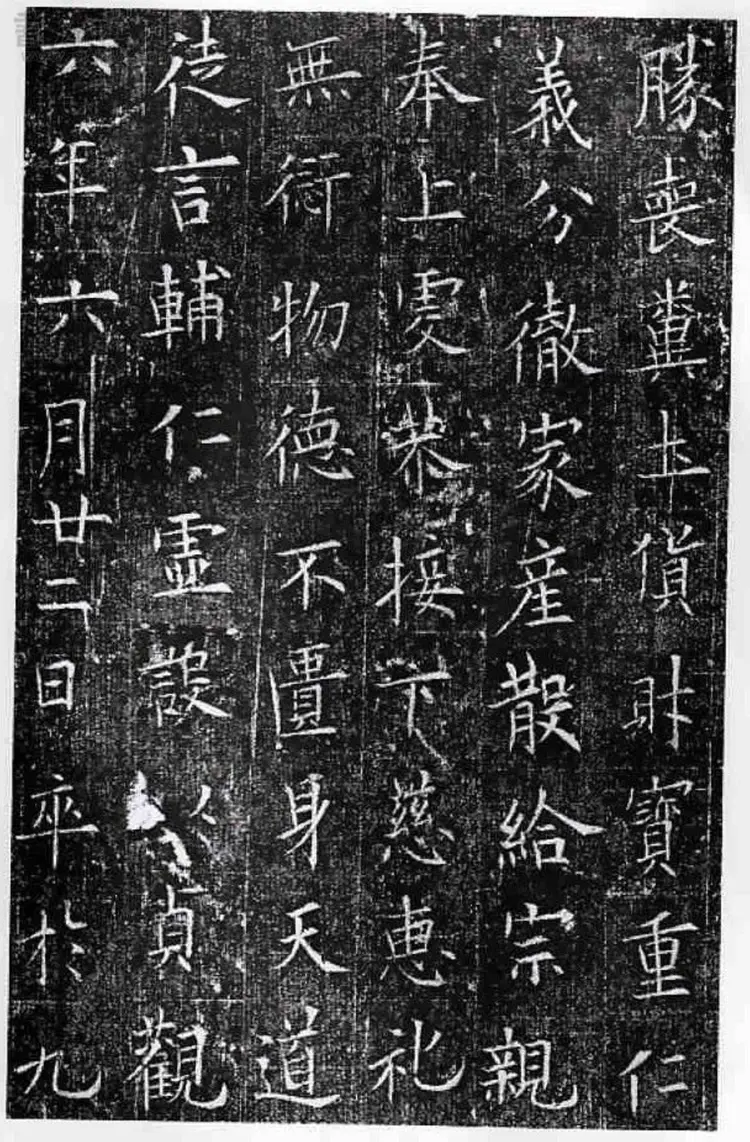 勝喪糞土貨財寶重仁
義分徹家産散給宗親
奉上虔恭接下慈惠礼
無衍物德不匱身天道
徒言輔仁虛設貞觀
六年六月廿二日卒於九